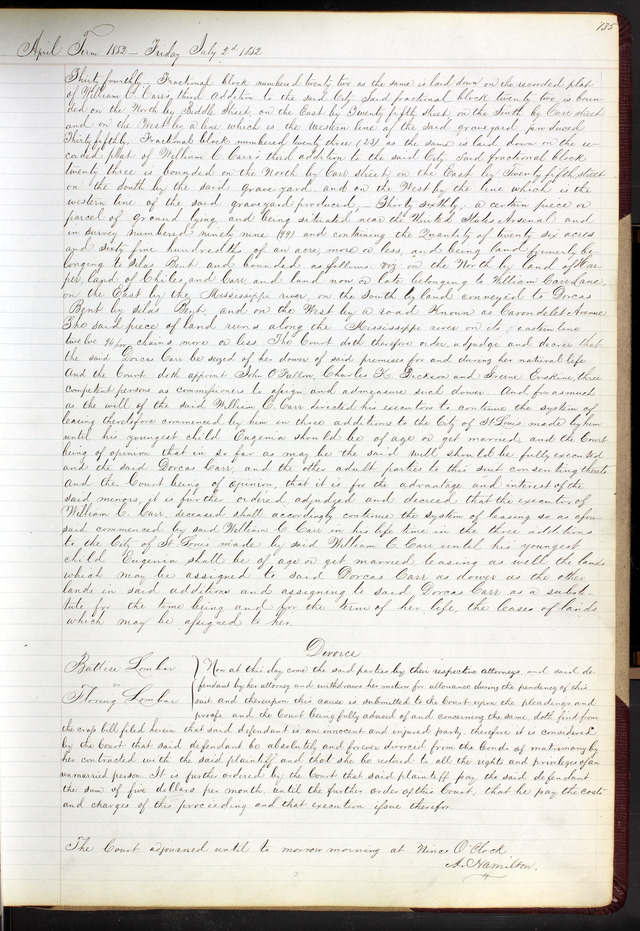 735
April Term 1852 — Friday July 2d 1852
Thirty fourthly, Fractional block numbered twenty two as the same is laid down on the recorded plat
of William C. Carr's third addition to the said City. Said fractional block twenty two, is boun-
ded on the North by Biddle Street, on the East by Twenty fifth Street, on the South by Carr street
and on the West by a line which is the western line of the said graveyard produced
Thirty fifthly, Fractional block numbered twenty three (23) as the same is laid down on the re-
corded plat of William C Carr's third addition to the said City. Said fractional block
twenty three is bounded on the North by Carr street, on the East by Twenty fifth street
on the South by the said graveyard and on the West by the line which is the
western line of the said graveyard produced, — Thirty sixthly; a certain piece or
parcel of ground lying and being situated near the United States Arsenal and
in survey numbered ninety nine (99) and containing the Quantity of twenty six acres
and sixty five hundredths of an acre, more or less, and being land formerly be-
longing to Silas Bent and bounded as follows viz: on the North by land of
per, land of Chiles and Carr and land now or late belonging to William Carr Lane
on the East by the Mississippi river, on the South by land conveyed to Dorcas
Bent by Silas Bent, and on the West by a road Known as Carondelet Avenue
The said piece of land runs along the Mississippi river on its eastern line
twelve chains more or less. The Court doth therefore order, adjudge and decree that
the said Dorcas Carr be seized of her dower of said premises for and during her natural life
And the Court doth appoint John O'Fallon, Charles K. Dickson and Greene Erskine, three
competent persons as commissioners to assign and admeasure such dower. And forasmuch
as the will of the said William C. Carr directed his executors to continue the system of
leasing theretofore commenced by him in three additions to the City of St Louis made by him
until his youngest child Eugenia should be of age or get married, and the Court
being of opinion that in so far as may be the said will should be fully executed
and the said Dorcas Carr, and the other adult parties to this suit consenting thereto
and the Court being of opinion, that it is for the advantage and interest of the
said minors, it is further ordered, adjudged and decreed that the executor of
William C. Carr, deceased shall accordingly continue the system of leasing so as afore
said commenced by said William C Carr in his life time in the three additions
to the City of St Louis made by said William C. Carr until his youngest
child Eugenia shall be of age or get married, leasing as well the lands
which may be assigned to said Dorcas Carr as dower as the other
lands in said additions and assigning to said Dorcas Carr as a substi-
tute for the time being and for the term of her life, the leases of lands
which may be assigned to her.
Divorce
Battise Lombar
vs
Floring Lombar
Now at this day come the said parties by their respective attorneys, and said de-
fendant by her attorney and withdraws her motion for allowance during the pendency of this
suit and thereupon this cause is submitted to the Court upon the pleadings and
proofs and the Court being fully advised of and concerning the same, doth find from
the cross bill filed herein that said defendant is an innocent and injured party, therefore it is considered
by the Court that said defendant be absolutely and forever divorced from the bonds of matrimony by
her contracted with the said plaintiff and that she be restored to all the rights and privileges of an
unmarried person. It is further ordered by the Court that said plaintiff pay the said defendant
the sum of five dollars per month, until the further order of this Court, that he pay the costs
and charges of this proceeding and that execution issue therefor.
The Court adjourned until to morrow morning at Nine O'Clock
A. Hamilton.